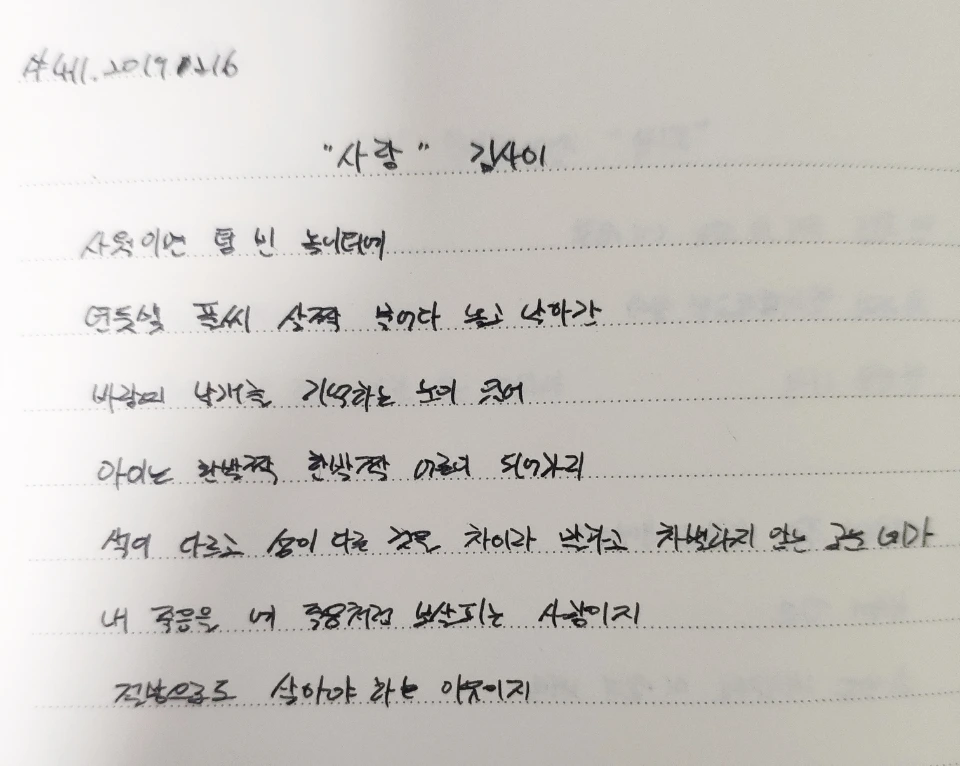 #411. 20191216
"사랑" 김사이
사웟이면 텅 빈 놀이터에
연둣빛 풀씨 살짝 물어다 놓고 날아간
바람의 날개를 기억하는 눈이 되어
아이는 한발짝 한발짝 어른이 되어가리
색이 다르고 성이 다른 것을 차이라 말하고 차별하지 않는 그는 네가
내 죽음을 네 죽음처럼 보살피는 사람이지
전방으로도 살아야 하는 이웃이지